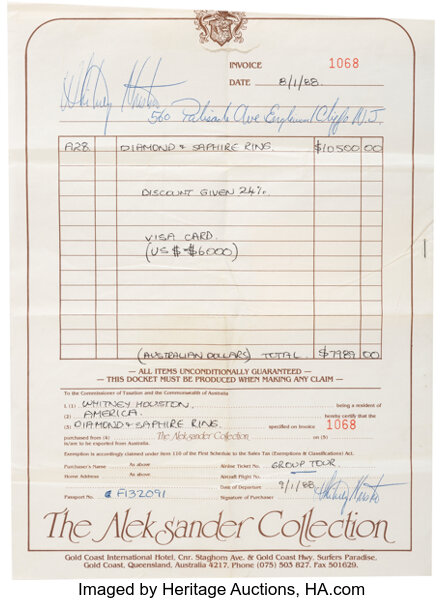 INVOICE 1068
DATE 8/1/88
Whitney Houston
560 Palisade Ave Englewood Cliffs N.J.
A28 DIAMOND & SAPHIRE RING. $10500 00
DISCOUNT GIVEN 24%.
VISA CARD.
(US $ $6000)
(AUSTRALIAN DOLLARS) TOTAL. $7989 00
— ALL ITEMS UNCONDITIONALLY GUARANTEED —
— THIS DOCKET MUST BE PRODUCED WHEN MAKING ANY CLAIM —
To the Commissioner of Taxation and the Commonwealth of Australia.
I, (1) WHITNEY HOUSTON, being a resident of
(2) AMERICA. hereby certify that the
(3) DIAMOND & SAPHIRE RING. specified on Invoice 1068
purchased from (4) The Aleksander Collection on (5)
is/are to be exported from Australia.
Exemption is accordingly claimed under Item 110 of the First Schedule to the Sales Tax (Exemptions & Classifications) Act.
Purchaser's Name As above Airline Ticket No. GROUP TOUR
Home Address As above Aircraft Flight No.
Date of Departure 9/1/88
Passport No. F132091 Signature of Purchaser Whitney Houston
The Aleksander Collection
Gold Coast International Hotel, Cnr. Staghorn Ave. & Gold Coast Hwy. Surfers Paradise,
Gold Coast, Queensland, Australia 4217. Phone (075) 503 827. Fax 501629.
Imaged by Heritage Auctions, HA.com